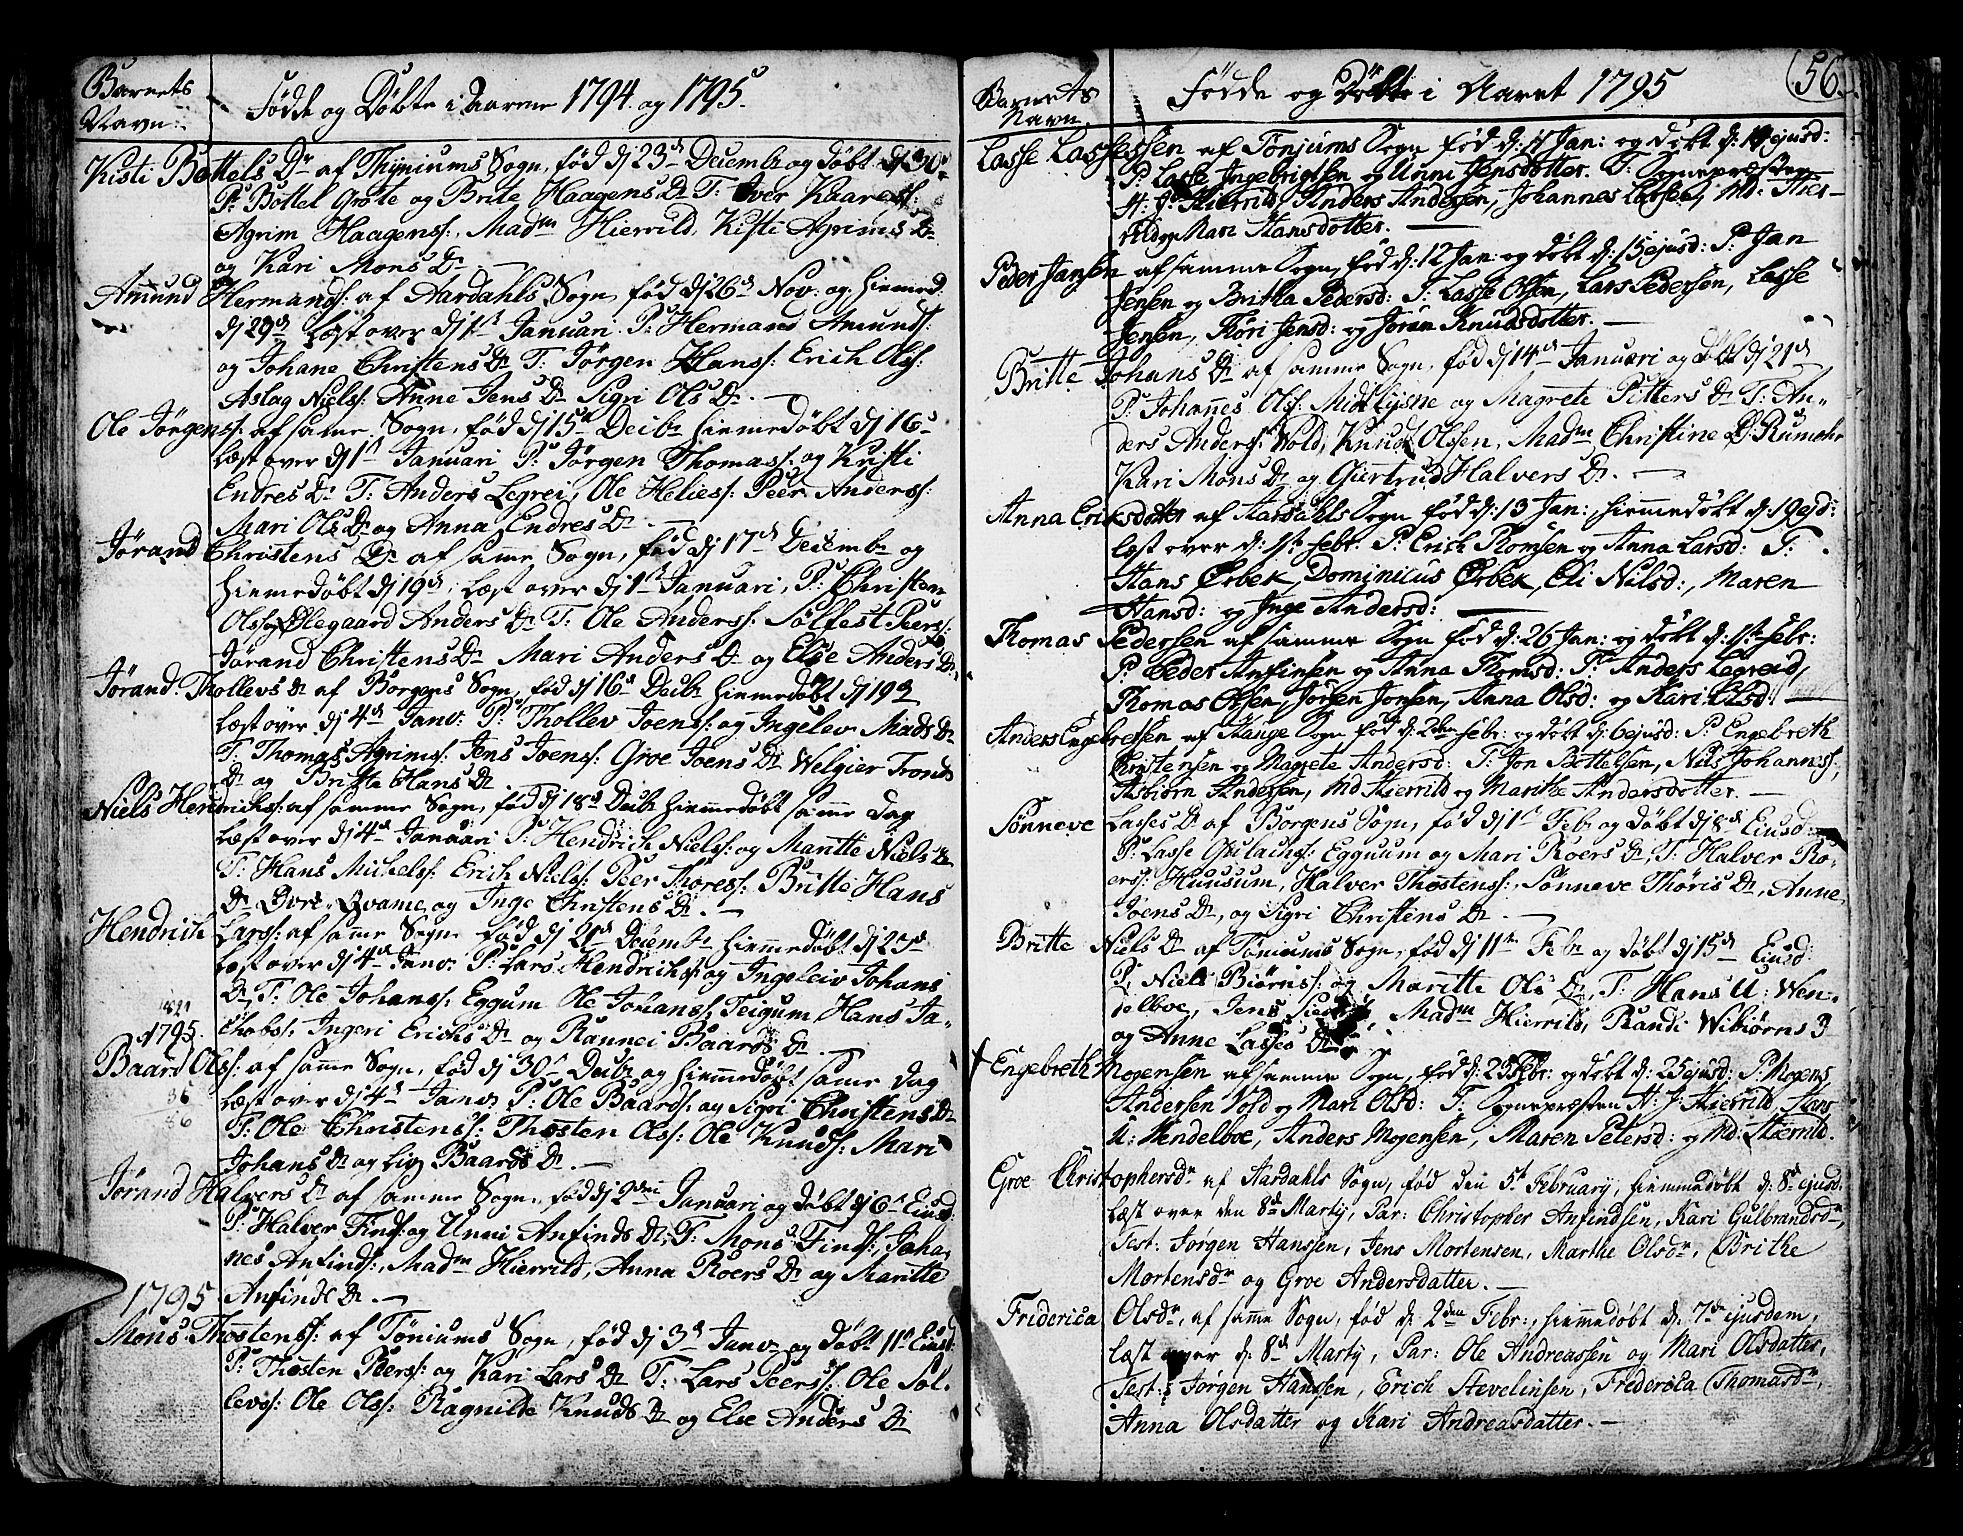 Barnets
Navn:
Fødde og Døbte i Aarene 1794 og 1795.
Kisti Bottels Dr af Thÿniums Sogn, fød dj 23d Decembr og døbt dj 30d
Pr Bottel Grøte og Brite Haagens Dr T: Iver Kaaress:
Agrim Haagenss:, Madm Hierrild, Kisti Agrims Dr
og Kari Mons Dr
Amund Hermands: af Aardahls Sogn, fød dj 26d Nov: og hiemed.
dj 29d Læst over dj 1st Januari. Pr Hermand Amunds:
og Johane Christens Dr T: Jørgen Hanss: Erich Olss:
Aslag Nielss: Anne Jens Dr Sigri Ols Dr
Ole Jørgenss: af samme Sogn, fød dj 15d Decbr hiemmedøbt dj 16d
Læst over dj 1st Januari Pr Jørgen Thomass: og Kristi
Endres Dr T: Anders Legrei, Ole Heliess: Peer Anderss:
Mari Ols Dr og Anna Endres Dr
Jørand Christens Dr af samme Sogn, fød dj 17d Decembr og
hiemedøbt dj 19d, Læst over dj 1st Januari, Pr Christen
Olss: og Ølegaard Anders Dr T: Ole Anderss: Sølfest Peerss:
Jørand Christens Dr Mari Anders Dr og Else Anders Dr
Jørand Thollevs Dr af Borgens Sogn, fød dj 16d Decbr hiemmedøbt dj 19d
Læst over dj 4d Janv: Pr Thollev Joenss: og Ingelev Mads Dr
T: Thomas Agrims: Jens Joenss: Groe Joens Dr Welgier Tronds
Dr og Britte Hans Dr
Niels Hendrichs: af samme Sogn, fød dj 18d Decbr hiemmedøbt samme Dag
Læst over dj 4d Januari Pr Hendrich Nielss: og Maritte Niels Dr
T: Hans Michelss: Erich Nielss: Peer Thoress: Britte Hans
Dr Øvre Qvame og Inge Christens Dr
Hendrich Larss: af samme Sogn fød dj 21d Decembr hiemmedøbt dj 23d
Læst over dj 4d Janv. Pr Lars Hendrichs: og Ingeleiv Johans
Dr T: Ole Johanss: Eggum Ole Johanss: Teigum Hans Ja-
chobss: Ingeri Erichs Dr og Rannei Baards Dr
1795.
Baard Olss: af samme Sogn, fød dj 30d Decbr og hiemmedøbt samme Dag
Læst over dj 4d Janv. Pr Ole Baards: og Sigri Christens Dr
T: Ole Christenss: Thosten Olss: Ole Knudss: Mari
Johans Dr og Baards Dr
Jørand Halvers Dr af samme Sogn, fød dj 2den Januari og døbt dj 6d Eiusd:
Pr Halver Finds: og Unni Anfinds Dr, T: Mons Finds:, Joha-
nes Anfinds:, Madm Hierrild, Anna Roers Dr og Maritte
Anfinds Dr
1795
Mons Thostenss: af Töniums Sogn, fød dj 3d Janv og døbt 11d Eiusd:
Pr Thosten Peerss: og Kari Lars Dr T: Lars Peerss: Ole Sol-
levss: Ole Olss: Ragnilde Knuds Dr og Else Anders Dr
56.
Barnets
Navn
Fødde og Døbte i Aaret 1795
Lasse Lassessen af Tönjums Sogn fød d: Jan: og døbt d: ejusd:
P: Lasse Ingebrigtsen og Unni Jensdotter. T: Sognepræsten
H: J: Hierrild, Anders Andersen, Johannes Lassen, Md: Hier-
rild og Mari Hansdotter.
Peder Jansen af samme Sogn, fød d: 12 Jan: og døbt d: 15 ejusd: P: Jan
Jensen og Britha Pedersd: T: Lasse Olsen, Lars Pedersen, Lasse
Jensen, Jensd: og Joran Knudsdotter.
Britte Johans Dr af samme Sogn, fød dj 14d Januari og døbt dj 21d
Pr Johannes Olss: Midt Ljsne og Magrete Pitters Dr T: An-
ders Anderss: Vold, Knud Olssen, Madm Christine D: Rumohr
Kari Mons Dr og Giertrud Halvers Dr
Anna Eriksdotter af Aardahls Sogn fød d: 13 Jan: hiemmedøbt d: 19 ejd:
læst over d: 1ste Febr: P: Erich Thomsen og Anna Larsd: T:
Hans Ørbek, Dominicus Ørbek, Eli Nilsd:, Maren
Hansd: og Inge Andersd:
Thomas Pedersen af samme Sogn fød d: 26 Jan: og døbt d: 1ste Febr:
P: Peder Anfinsen og Anna Thomsd: T: Anders Legreid,
Thomas Olsen, Jörgen Jonsen, Anna Olsd: og Kari Olsd:
Anders Engebretsen af Hauge Sogn fød d: 2den Febr: og døbt d: 6 ejusd: P: Engebreth
Christensen og Magrete Andersd: T: Jon Bottelsen, Nils Johanness:,
Asbiørn Andersen, Md Hierrild og Marithe Andersdotter.
Sønneve Lasses Dr af Borgens Sogn, fød dj 1d Febr og døbt dj 8d Eiusd:
Pr Lasse Gulachs: Egguum og Mari Roers Dr, T: Halver Ro-
erss: Huusum, Halver Thostenss:, Sønneve Thøris Dr, Anne
Joens Dr, og Sigri Christens Dr
Britte Niels Dr af Töniums Sogn, fød dj 11d Febr og døbt dj 15d Eiusd:
Pr Niels Biørnss: og Maritte Ols Dr, T: Hans U: Wen-
delboe, Jens Madm Hierrild, Randi Wibiørns Dr
og Anne Lasses Dr
Engebreth Mogensen af samme Sogn, fød d: 23 Febr: og døbt d: 25 ejusd: P: Mogens
Andersen Vold og Mari Olsd: T: Sognepræsten H: J: Hierrild, Hans
U: Wendelboe, Anders Mogensen, Maren Petersd: og Md: Hierrild.
Groe Christophersdr af Aardahls Sogn, fød den 5t February, hiemmedøbt d: 8d ejusd:
læst over den 8d Martÿ, Par: Christopher Anfindsen, Kari Gulbrandsdr,
Test: Jørgen Hanssen, Jens Mortensen, Marthe Olsdr, Brithe
Mortensdr og Groe Andersdatter.
Friderica Olsdr, af samme Sogn, fød d: 2den Febr:, hiemmedøbt d: 7de ejusdem,
læst over d: 8d Martÿ, Par: Ole Andreassen og Mari Olsdatter,
Test: Jørgen Hanssen, Erich Stevelinsen, Frederica Thomasdr,
Anna Olsdatter og Kari Andreasdatter.